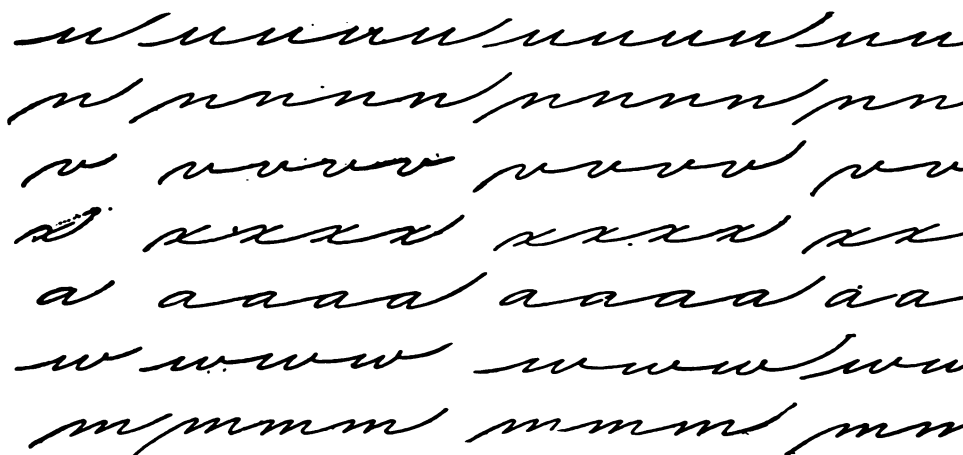 u uuuu uuuu uu
n nnnn nnnn nn
v vvvv vvvv vv
x xxxx xxxx xx
a aaaa aaaa aa
w www www ww
m mmm mmm mm